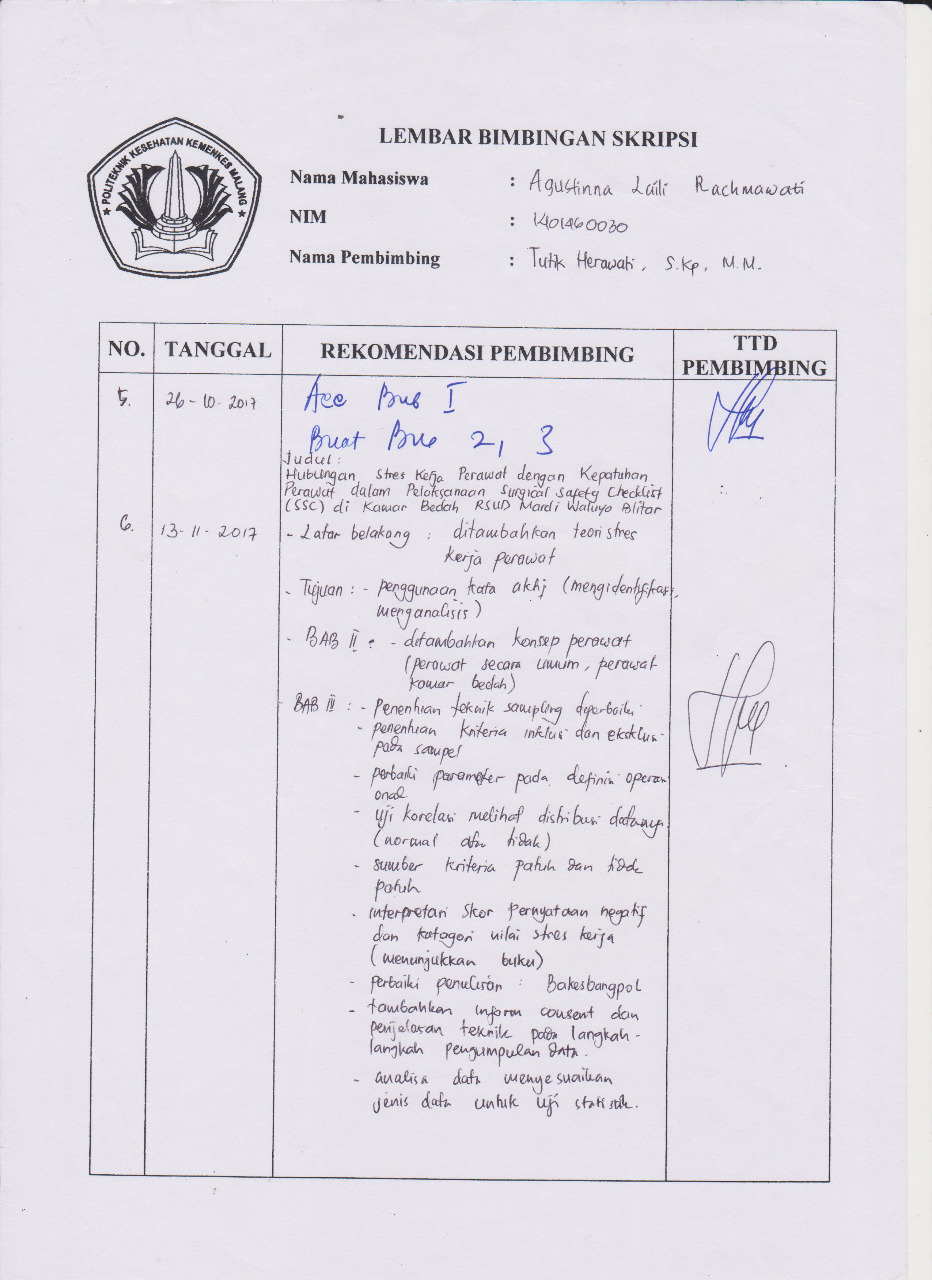 POLITEKNIK KESEHATAN KEMENKES MALANG
LEMBAR BIMBINGAN SKRIPSI
Nama Mahasiswa : Agustinna Laili Rachmawati
NIM : 1401460030
Nama Pembimbing : Tutik Herawati, S.Kp, M.M.
NO. TANGGAL REKOMENDASI PEMBIMBING TTD PEMBIMBING
5. 26-10-2017 Acc Bab I
Buat Bab 2, 3
Judul :
Hubungan Stres Kerja Perawat dengan Kepatuhan
Perawat dalam Pelaksanaan Surgical Safety Checklist
(SSC) di Kamar Bedah RSUD Mardi Waluyo Blitar
6. 13-11-2017 - Latar belakang : ditambahkan teori stres
kerja perawat
- Tujuan : - penggunaan kata aktif (mengidentifikasi,
menganalisis)
- BAB II : - ditambahkan konsep perawat
(perawat secara umum, perawat
kamar bedah)
BAB III : - Penentuan teknik sampling diperbaiki
- penentuan kriteria inklusi dan eksklusi
pada sampel
- perbaiki parameter pada definisi operasi
onal
- Uji korelasi melihat distribusi datanya
(normal atau tidak)
- sumber kriteria patuh dan tidak
patuh
- interpretasi skor pernyataan negatif
dan katagori nilai stres kerja
(menunjukkan buku)
- perbaiki penulisan : Bakesbangpol
- tambahkan inform consent dan
penjelasan teknik pada langkah-
langkah pengumpulan data.
- analisa data menyesuaikan
jenis data untuk uji statistik.